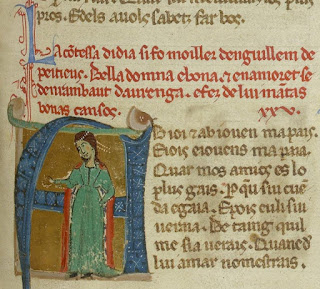 pios. Edels auols sabetz far bos.
La cõtessa didia si fo moiller denguillem de
peiteus. Bella domna ebona, & enamoret se
denraimbaut daurenga. efez de lui mãtas
bonas cansos. xxv.
Ab ioi & ab iouen ma pais.
Eiois eiouens ma paia.
Quar mos amics es lo
plus gais. Per qu sui cuen
da egaia. E pois eu li sui
ueraia. Be taing quil
me sia uerais. Quanc d
lui amar no mestrais.